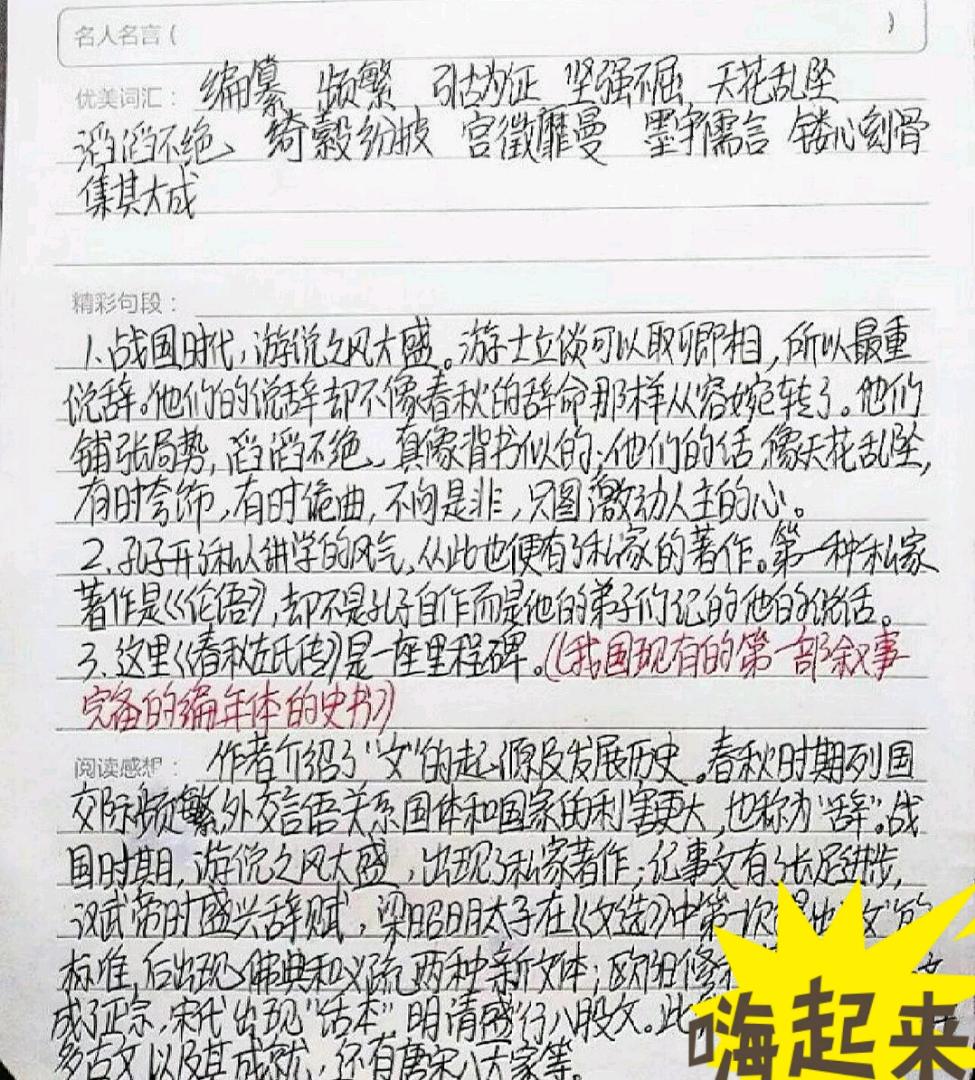 名人名言（ ）
优美词汇： 编纂 频繁 引古为证 坚强不屈 天花乱坠
滔滔不绝、 绮縠纷披 宫徵靡曼 墨宇儒言 镂心刻骨
集其大成
精彩句段：
1.战国时代，游说之风大盛。游士立谈可以取卿相，所以最重
说辞。他们的说辞却不像春秋的辞命那样从容婉转了。他们
铺张局势，滔滔不绝、真像背书似的；他们的话，像天花乱坠，
有时夸饰，有时诡曲，不问是非，只图激动人主的心。
2.孔子开了私人讲学的风气，从此也便有了私家的著作。第一种私家
著作是《伦语》，却不是孔子自作而是他的弟子们记的他的说话。
3.这里《春秋左氏传》是一座里程碑。(《我国现有的第一部叙事
完备的编年体的史书》)
阅读感想： 作者介绍了“文”的起源及发展历史。春秋时期列国
交际频繁，外交言语关系国体和国家的利害更大，也称为“辞”。战
国时期，游说之风大盛，出现了私家著作；纪事文有了长足进步，
汉武帝时盛兴辞赋，梁昭明太子在《文选》中第一次提出“文”的
标准，后出现佛典和义疏两种新文体；欧阳修
成了正宗，宋代出现“话本”明清盛行八股文。此
多古文以及其成就，还有唐宋八大家等。
嗨起来